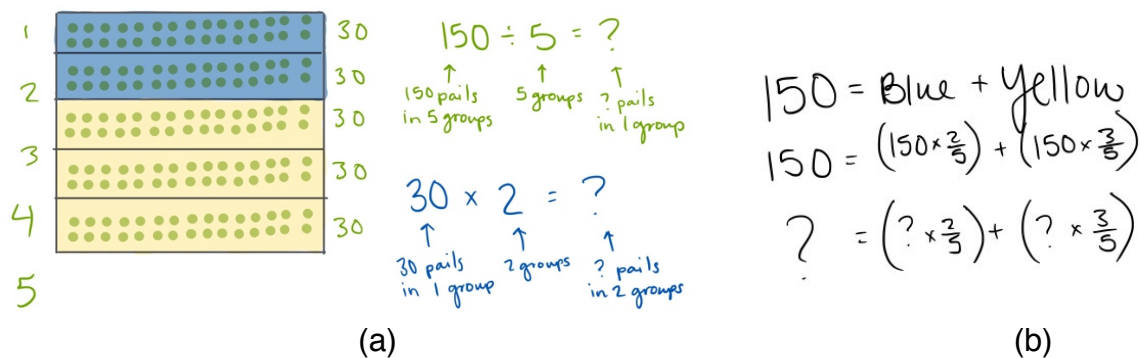 1
30
2
30
3
30
4
30
5
30
150 ÷ 5 = ?
150 pails in 5 groups
5 groups
? pails in 1 group
30 × 2 = ?
30 pails in 1 group
2 groups
? pails in 2 groups
(a)
150 = Blue + Yellow
150 = (150 × 2/5) + (150 × 3/5)
? = (? × 2/5) + (? × 3/5)
(b)